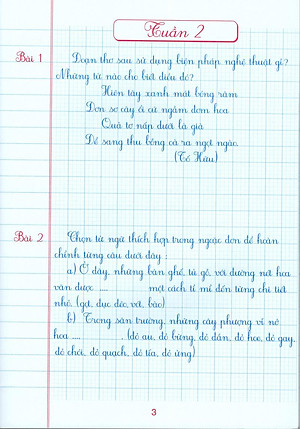 Tuần 2
Bài 1 Đoạn thơ sau sử dụng biện pháp nghệ thuật gì?
Những từ nào cho biết điều đó?
Hiên tây xanh mát bóng râm
Đơn sơ cây ổi ươm đơm hoa
Quả tơ nấp dưới lá già
Để sang thu bỗng cả ra ngọt ngào
(Tố Hữu)
Bài 2 Chọn từ ngữ thích hợp trong ngoặc đơn để hoàn
chỉnh từng câu dưới đây:
a) Ở đây, những bàn ghế, tủ gỗ, với đường nét hoa
văn được .... một cách tỉ mỉ đến từng chi tiết
nhỏ. (gọt, đục đẽo, vót, bào)
b) Trong sân trường, những cây phượng vĩ nở
hoa .... (đỏ au, đỏ bừng, đỏ đắn, đỏ hoe, đỏ gay,
đỏ chói, đỏ quạch, đỏ tía, đỏ ửng)
3